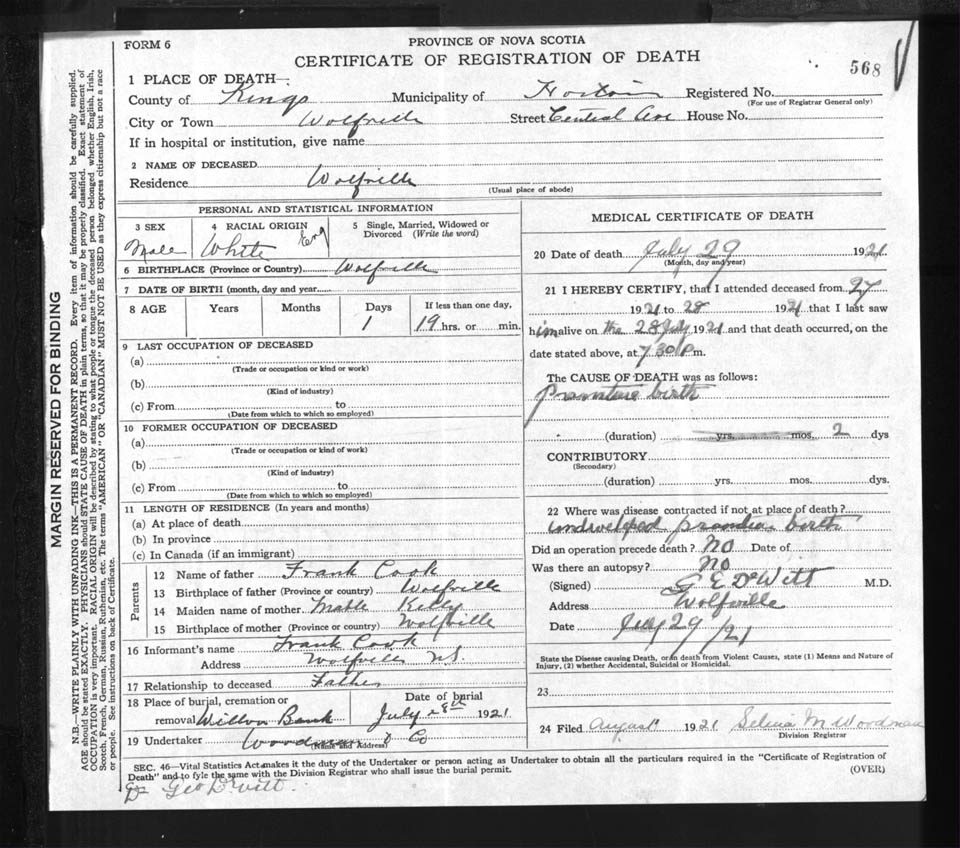 FORM 6
PROVINCE OF NOVA SCOTIA
CERTIFICATE OF REGISTRATION OF DEATH
568
1 PLACE OF DEATH—
County of Kings Municipality of Horton Registered No.
(For use of Registrar General only)
City or Town Wolfville Street Central Ave House No.
If in hospital or institution, give name
2 NAME OF DECEASED
Residence Wolfville
(Usual place of abode)
PERSONAL AND STATISTICAL INFORMATION
3 SEX 4 RACIAL ORIGIN 5 Single, Married, Widowed or Divorced (Write the word)
Male White Eng
6 BIRTHPLACE (Province or Country) Wolfville
7 DATE OF BIRTH (month, day and year)
8 AGE Years Months Days If less than one day,
1 19 hrs. or min.
9 LAST OCCUPATION OF DECEASED
(a)
(Trade or occupation or kind or work)
(b)
(Kind of industry)
(c) From to
(Date from which to which so employed)
10 FORMER OCCUPATION OF DECEASED
(a)
(Trade or occupation or kind of work)
(b)
(Kind of industry)
(c) From to
(Date from which to which so employed)
11 LENGTH OF RESIDENCE (In years and months)
(a) At place of death
(b) In province
(c) In Canada (if an immigrant)
Parents
12 Name of father Frank Cook
13 Birthplace of father (Province or country) Wolfville
14 Maiden name of mother Mable Kelly
15 Birthplace of mother (Province or country) Wolfville
16 Informant's name Frank Cook
Address Wolfville N.S.
17 Relationship to deceased Father
18 Place of burial, cremation or removal Willow Bank
Date of burial July 28th 1921
19 Undertaker Woodman & Co
(Name and Address)
MEDICAL CERTIFICATE OF DEATH
20 Date of death July 29 1921
(Month, day and year)
21 I HEREBY CERTIFY, that I attended deceased from 27
1921 to 28 1921 that I last saw
him alive on the 28 July 1921 and that death occurred, on the
date stated above, at 7 30 p m.
The CAUSE OF DEATH was as follows:
premature birth
(duration) yrs. mos. 2 dys
CONTRIBUTORY
(Secondary)
(duration) yrs. mos. dys.
22 Where was disease contracted if not at place of death?
birth
Did an operation precede death? No Date of
Was there an autopsy? No
(Signed) G E DeWitt M.D.
Address Wolfville
Date July 29/21
State the Disease causing Death, or, in death from Violent Causes, state (1) Means and Nature of
Injury, (2) whether Accidental, Suicidal or Homicidal.
23
24 Filed August 1921 Selena M Woodman
Division Registrar
SEC. 46—Vital Statistics Act makes it the duty of the Undertaker or person acting as Undertaker to obtain all the particulars required in the "Certificate of Registration of
Death" and to fyle the same with the Division Registrar who shall issue the burial permit.
(OVER)
Dr Geo DeWitt.
MARGIN RESERVED FOR BINDING
N.B.—WRITE PLAINLY WITH UNFADING INK—THIS IS A PERMANENT RECORD. Every item of information should be carefully supplied.
AGE should be stated EXACTLY. PHYSICIANS should STATE CAUSE OF DEATH in plain terms, so that it may be properly classified. Exact statement of
OCCUPATION is very important. RACIAL ORIGIN will be described by stating to what people or tongue the deceased person belonged whether English, Irish,
Scotch, French, German, Russian, Ruthenian, etc. The terms "AMERICAN" OR "CANADIAN" MUST NOT BE USED as they express citizenship but not a race
or people. See instructions on back of Certificate.